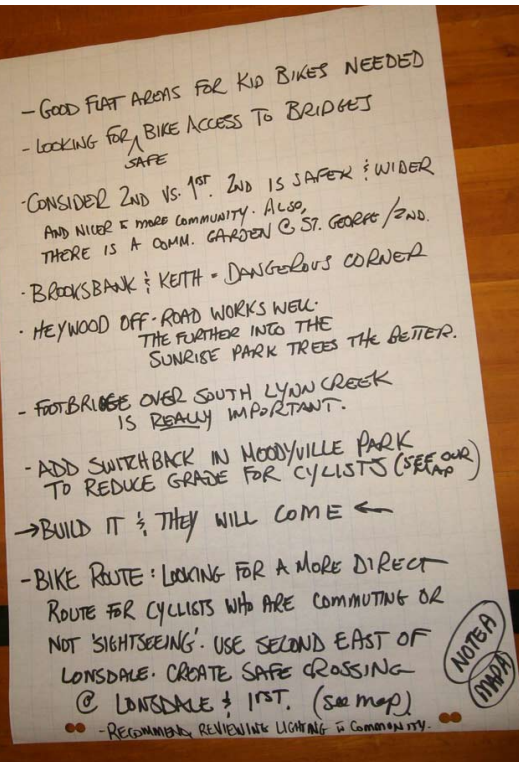 - GOOD FLAT AREAS FOR KID BIKES NEEDED
- LOOKING FOR SAFE BIKE ACCESS TO BRIDGES
· CONSIDER 2ND VS. 1ST. 2ND IS SAFER & WIDER
AND NICER & MORE COMMUNITY. ALSO,
THERE IS A COMM. GARDEN @ ST. GEORGE/2ND.
· BROOKSBANK & KEITH = DANGEROUS CORNER
· HEYWOOD OFF-ROAD WORKS WELL.
THE FURTHER INTO THE
SUNRISE PARK TREES THE BETTER.
- FOOTBRIDGE OVER SOUTH LYNN CREEK
IS REALLY IMPORTANT.
- ADD SWITCHBACK IN MOODYVILLE PARK
TO REDUCE GRADE FOR CYCLISTS (SEE OUR MAP)
→ BUILD IT & THEY WILL COME ←
- BIKE ROUTE: LOOKING FOR A MORE DIRECT
ROUTE FOR CYCLISTS WHO ARE COMMUTING OR
NOT 'SIGHTSEEING'. USE SECOND EAST OF
LONSDALE. CREATE SAFE CROSSING
@ LONSDALE & 1RST. (see map)
- RECOMMEND REVIEWING LIGHTING IN COMMUNITY.
NOTE A
MAP A